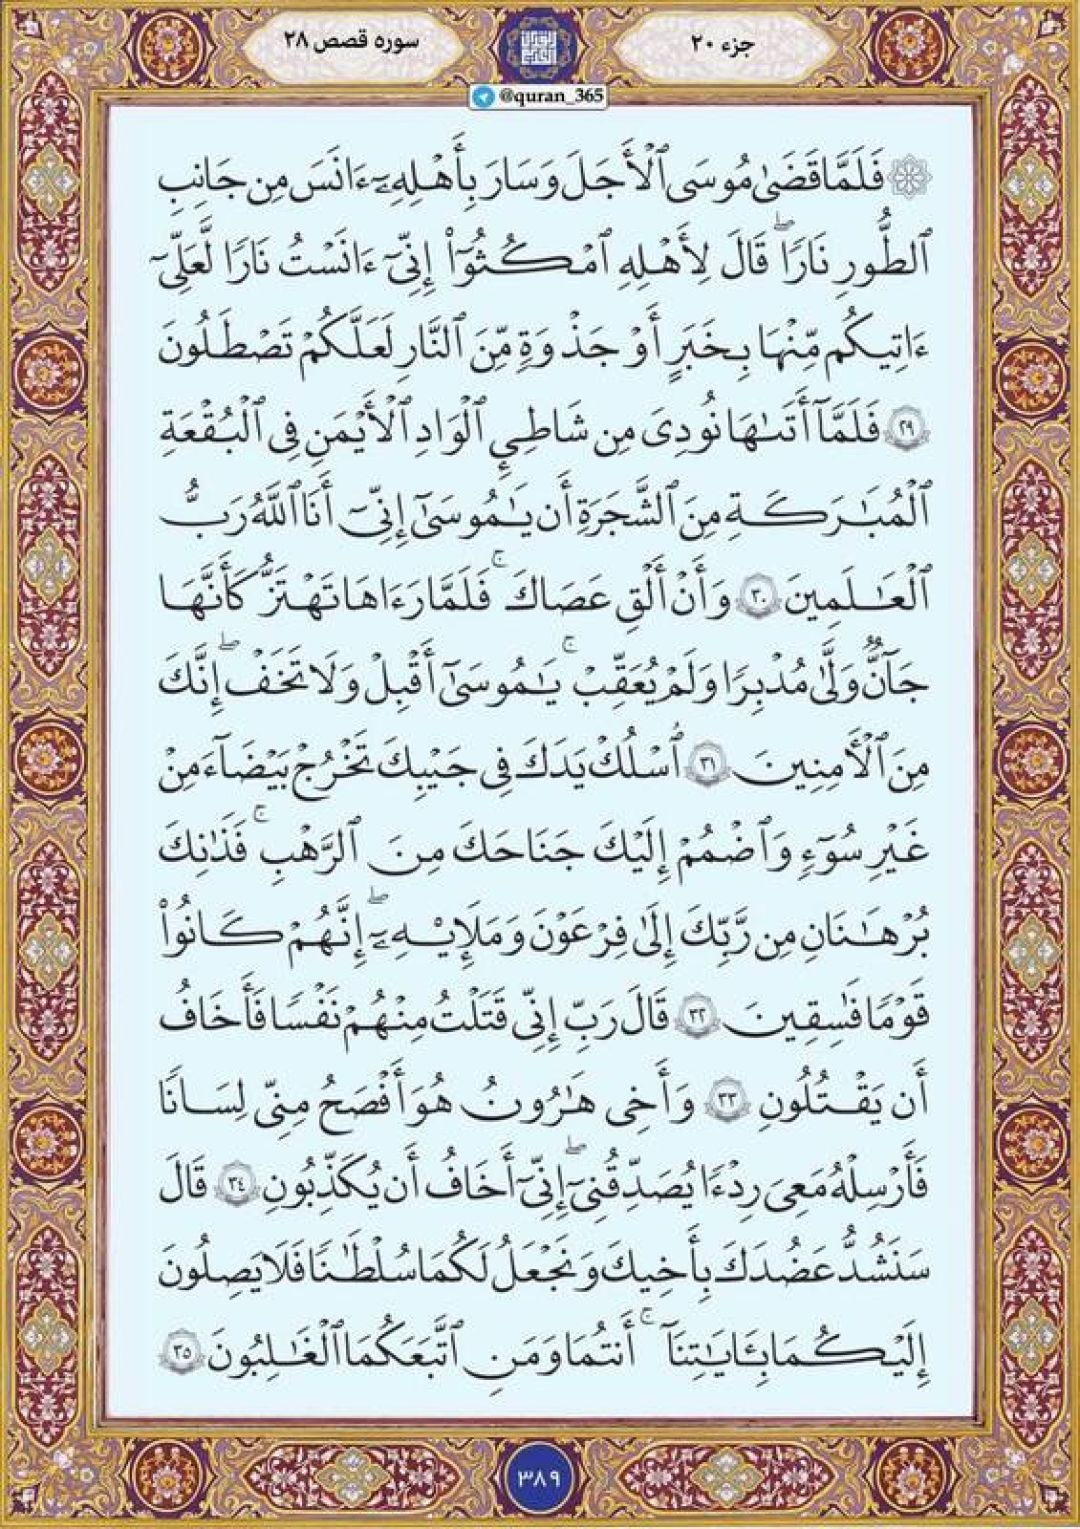 جزء ۲۰
سوره قصص ۲۸
@quran_365
۞ فَلَمَّا قَضَىٰ مُوسَى ٱلْأَجَلَ وَسَارَ بِأَهْلِهِۦٓ ءَانَسَ مِن جَانِبِ
ٱلطُّورِ نَارًاۖ قَالَ لِأَهْلِهِ ٱمْكُثُوٓا۟ إِنِّىٓ ءَانَسْتُ نَارًا لَّعَلِّىٓ
ءَاتِيكُم مِّنْهَا بِخَبَرٍ أَوْ جَذْوَةٍ مِّنَ ٱلنَّارِ لَعَلَّكُمْ تَصْطَلُونَ
۲۹ فَلَمَّآ أَتَىٰهَا نُودِىَ مِن شَاطِئِ ٱلْوَادِ ٱلْأَيْمَنِ فِى ٱلْبُقْعَةِ
ٱلْمُبَـٰرَكَةِ مِنَ ٱلشَّجَرَةِ أَن يَـٰمُوسَىٰٓ إِنِّىٓ أَنَا ٱللَّهُ رَبُّ
ٱلْعَـٰلَمِينَ ۳۰ وَأَنْ أَلْقِ عَصَاكَۚ فَلَمَّا رَءَاهَا تَهْتَزُّ كَأَنَّهَا
جَآنٌّ وَلَّىٰ مُدْبِرًا وَلَمْ يُعَقِّبْۚ يَـٰمُوسَىٰٓ أَقْبِلْ وَلَا تَخَفْۖ إِنَّكَ
مِنَ ٱلْأَمِنِينَ ۳۱ ٱسْلُكْ يَدَكَ فِى جَيْبِكَ تَخْرُجْ بَيْضَآءَ مِنْ
غَيْرِ سُوٓءٍ وَٱضْمُمْ إِلَيْكَ جَنَاحَكَ مِنَ ٱلرَّهْبِۚ فَذَٰنِكَ
بُرْهَـٰنَانِ مِن رَّبِّكَ إِلَىٰ فِرْعَوْنَ وَمَلَإِي۟هِۦٓۖ إِنَّهُمْ كَانُوا۟
قَوْمًا فَـٰسِقِينَ ۳۲ قَالَ رَبِّ إِنِّى قَتَلْتُ مِنْهُمْ نَفْسًا فَأَخَافُ
أَن يَقْتُلُونِ ۳۳ وَأَخِى هَـٰرُونُ هُوَ أَفْصَحُ مِنِّى لِسَانًا
فَأَرْسِلْهُ مَعِىَ رِدْءًا يُصَدِّقُنِىٓۖ إِنِّىٓ أَخَافُ أَن يُكَذِّبُونِ ۳٤ قَالَ
سَنَشُدُّ عَضُدَكَ بِأَخِيكَ وَنَجْعَلُ لَكُمَا سُلْطَـٰنًا فَلَا يَصِلُونَ
إِلَيْكُمَا بِـَٔايَـٰتِنَآۚ أَنتُمَا وَمَنِ ٱتَّبَعَكُمَا ٱلْغَـٰلِبُونَ ۳٥
۳۸۹